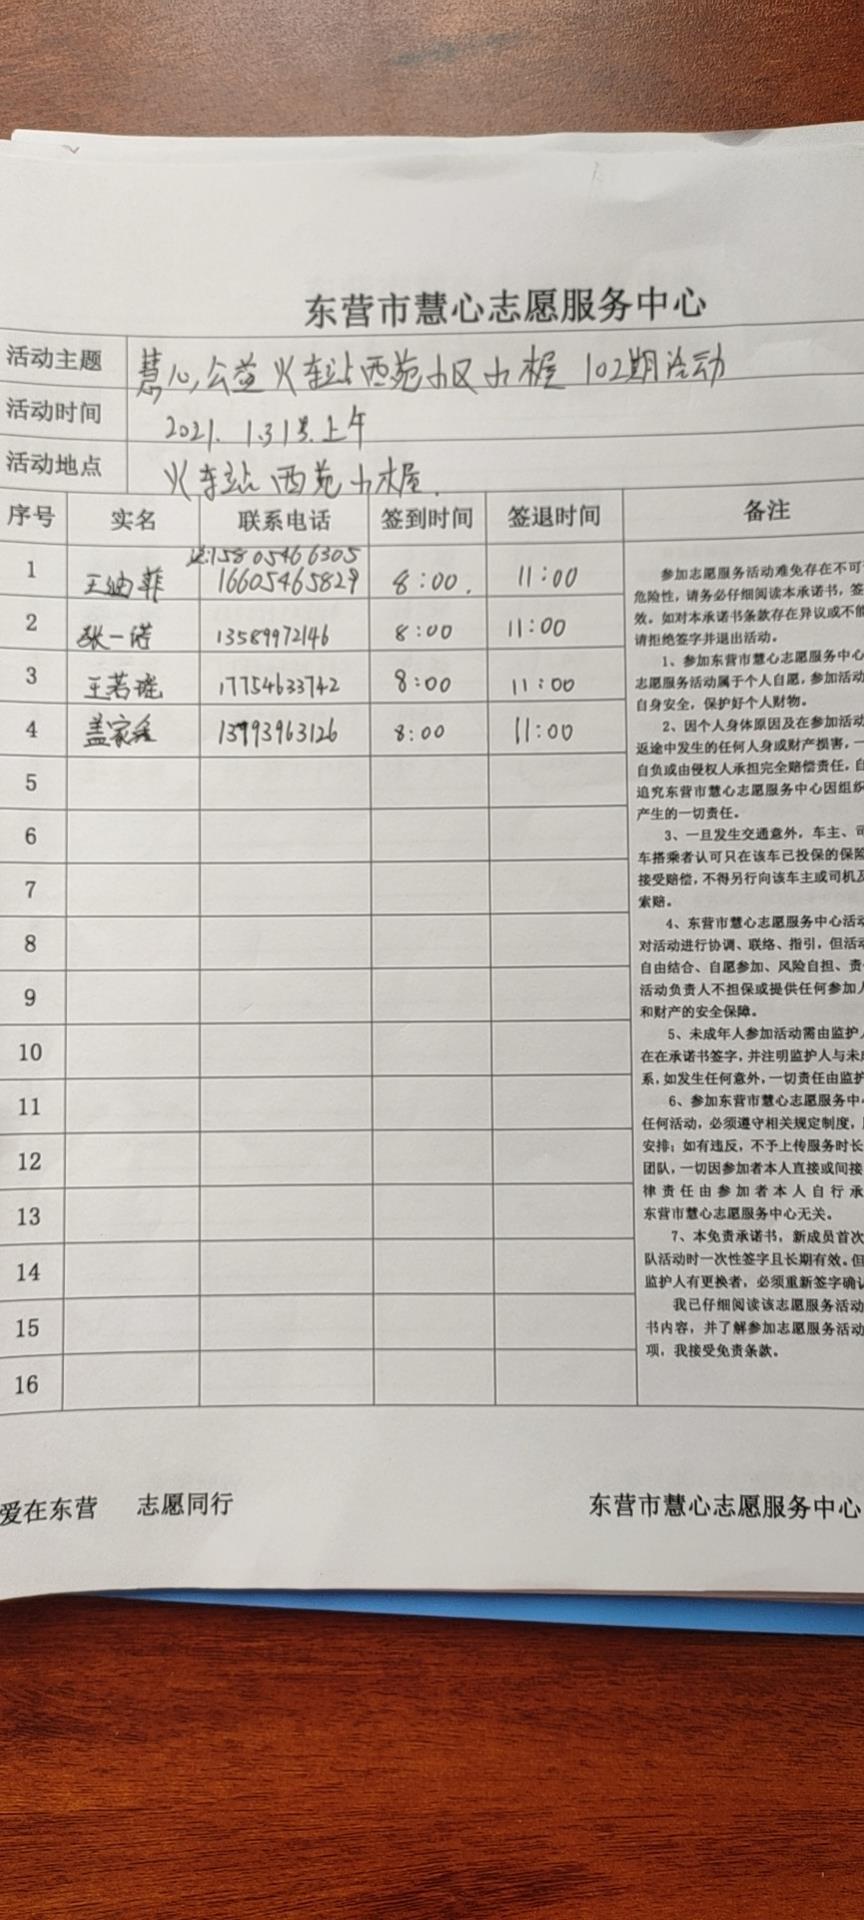 东营市慧心志愿服务中心
活动主题 慧心公益火车站西苑小区小木屋 102期活动
活动时间 2021. 1.31号.上午
活动地点 火车站西苑小木屋.
序号 实名 联系电话 签到时间 签退时间 备注
15805466305
1 王迪菲 16605465829 8:00. 11:00
2 张一诺 13589972146 8:00 11:00
3 王若瑶 17754633742 8:00 11:00
4 盖家鑫 13793963126 8:00 11:00
5
6
7
8
9
10
11
12
13
14
15
16
参加志愿服务活动难免存在不可
危险性，请务必仔细阅读本承诺书，签
效。如对本承诺书条款存在异议或不能
请拒绝签字并退出活动。
1、参加东营市慧心志愿服务中心
志愿服务活动属于个人自愿，参加活动
自身安全，保护好个人财物。
2、因个人身体原因及在参加活动
返途中发生的任何人身或财产损害，一
自负或由侵权人承担完全赔偿责任，自
追究东营市慧心志愿服务中心因组织
产生的一切责任。
3、一旦发生交通意外，车主、司
车搭乘者认可只在该车已投保的保险
接受赔偿，不得另行向该车主或司机及
索赔。
4、东营市慧心志愿服务中心活动
对活动进行协调、联络、指引，但活动
自由结合、自愿参加、风险自担、责
活动负责人不担保或提供任何参加人
和财产的安全保障。
5、未成年人参加活动需由监护人
在在承诺书签字，并注明监护人与未成
系，如发生任何意外，一切责任由监护
6、参加东营市慧心志愿服务中心
任何活动，必须遵守相关规定制度，
安排；如有违反，不予上传服务时长
团队，一切因参加者本人直接或间接
律责任由参加者本人自行承
东营市慧心志愿服务中心无关。
7、本免责承诺书，新成员首次
队活动时一次性签字且长期有效。但
监护人有更换者，必须重新签字确认
我已仔细阅读该志愿服务活动
书内容，并了解参加志愿服务活动
项，我接受免责条款。
爱在东营 志愿同行 东营市慧心志愿服务中心